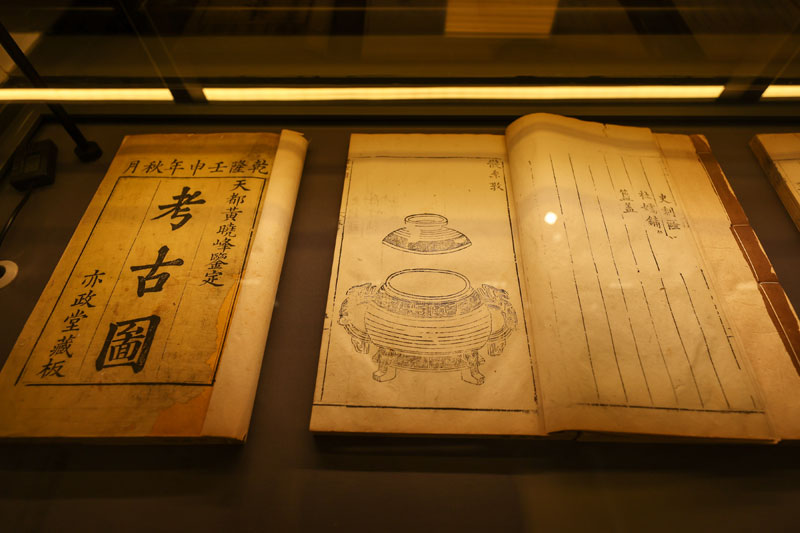 乾隆壬申年秋月
天都黃曉峰鑒定
考古圖
亦政堂藏板
季敦